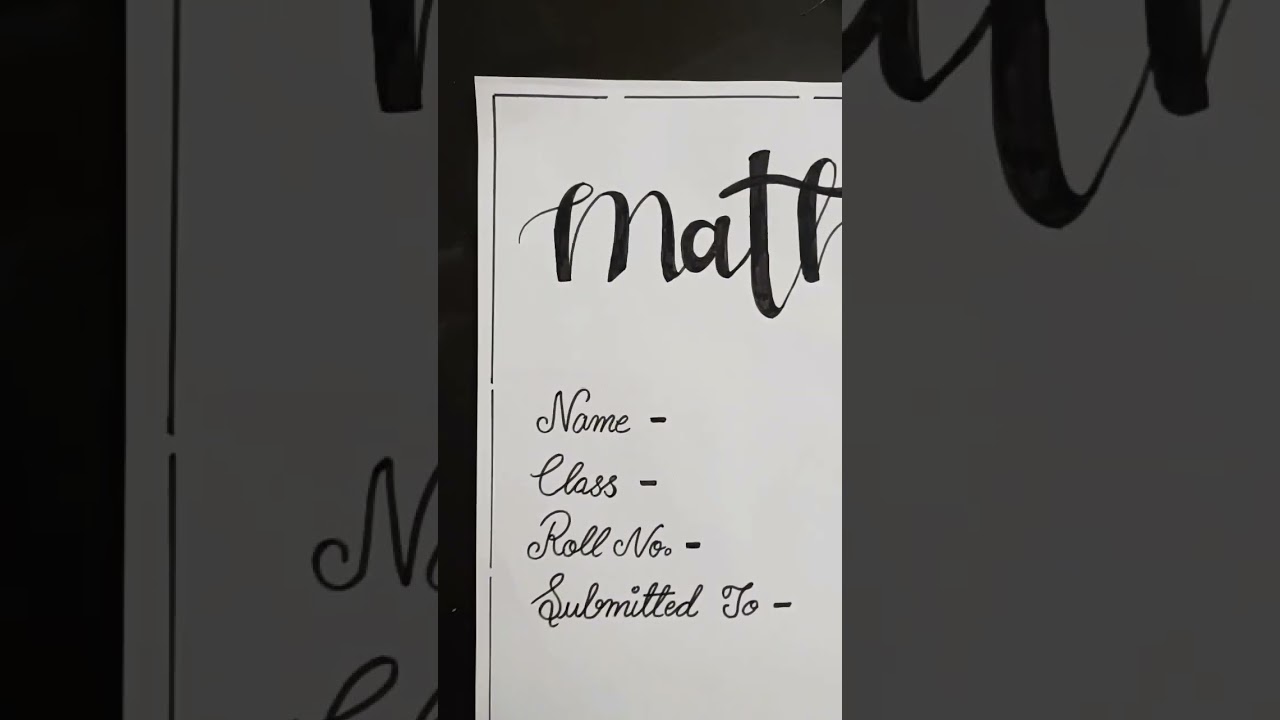 Math
Name -
Class -
Roll No. -
Submitted To -